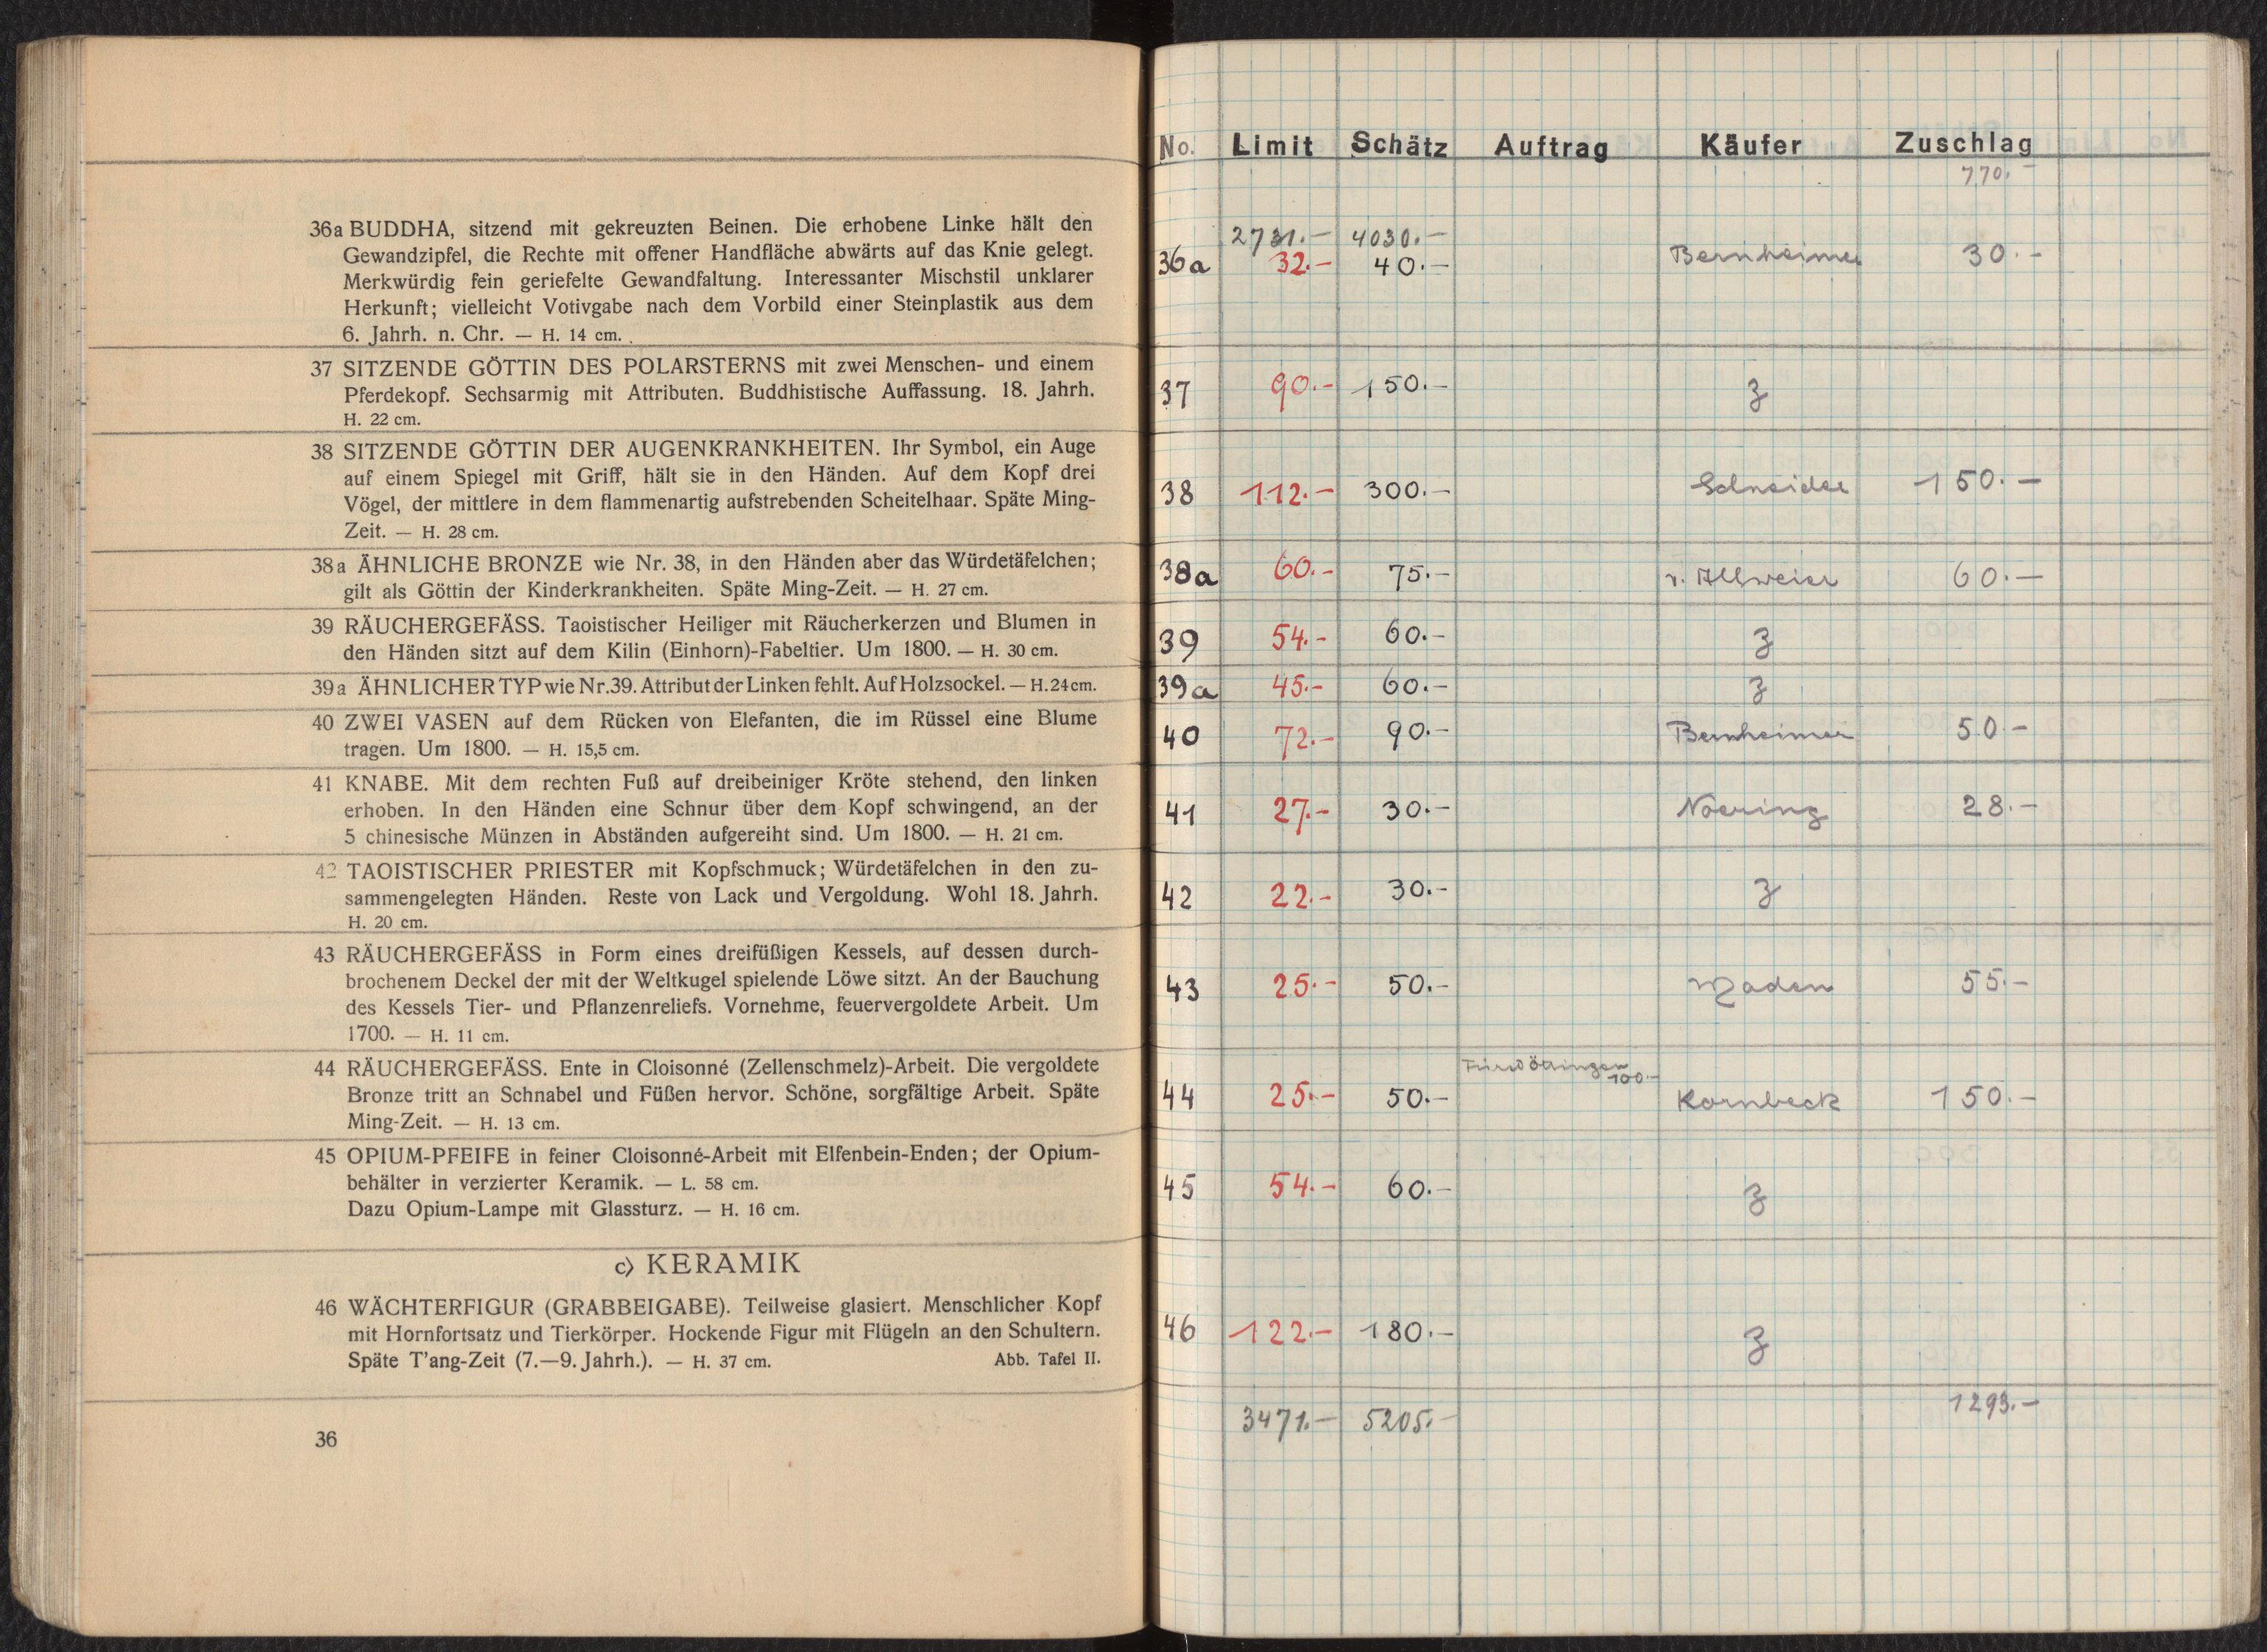 36a BUDDHA, sitzend mit gekreuzten Beinen. Die erhobene Linke hält den
Gewandzipfel, die Rechte mit offener Handfläche abwärts auf das Knie gelegt.
Merkwürdig fein geriefelte Gewandfaltung. Interessanter Mischstil unklarer
Herkunft; vielleicht Votivgabe nach dem Vorbild einer Steinplastik aus dem
6. Jahrh. n. Chr. — H. 14 cm.
37 SITZENDE GÖTTIN DES POLARSTERNS mit zwei Menschen- und einem
Pferdekopf. Sechsarmig mit Attributen. Buddhistische Auffassung. 18. Jahrh.
H. 22 cm.
38 SITZENDE GÖTTIN DER AUGENKRANKHEITEN. Ihr Symbol, ein Auge
auf einem Spiegel mit Griff, hält sie in den Händen. Auf dem Kopf drei
Vögel, der mittlere in dem flammenartig aufstrebenden Scheitelhaar. Späte Ming-
Zeit. — H. 28 cm.
38a ÄHNLICHE BRONZE wie Nr. 38, in den Händen aber das Würdetäfelchen;
gilt als Göttin der Kinderkrankheiten. Späte Ming-Zeit. — H. 27 cm.
39 RÄUCHERGEFÄSS. Taoistischer Heiliger mit Räucherkerzen und Blumen in
den Händen sitzt auf dem Kilin (Einhorn)-Fabeltier. Um 1800. — H. 30 cm.
39a ÄHNLICHER TYP wie Nr. 39. Attribut der Linken fehlt. Auf Holzsockel. — H. 24 cm.
40 ZWEI VASEN auf dem Rücken von Elefanten, die im Rüssel eine Blume
tragen. Um 1800. — H. 15,5 cm.
41 KNABE. Mit dem rechten Fuß auf dreibeiniger Kröte stehend, den linken
erhoben. In den Händen eine Schnur über dem Kopf schwingend, an der
5 chinesische Münzen in Abständen aufgereiht sind. Um 1800. — H. 21 cm.
42 TAOISTISCHER PRIESTER mit Kopfschmuck; Würdetäfelchen in den zu-
sammengelegten Händen. Reste von Lack und Vergoldung. Wohl 18. Jahrh.
H. 20 cm.
43 RÄUCHERGEFÄSS in Form eines dreifüßigen Kessels, auf dessen durch-
brochenem Deckel der mit der Weltkugel spielende Löwe sitzt. An der Bauchung
des Kessels Tier- und Pflanzenreliefs. Vornehme, feuervergoldete Arbeit. Um
1700. — H. 11 cm.
44 RÄUCHERGEFÄSS. Ente in Cloisonné (Zellenschmelz)-Arbeit. Die vergoldete
Bronze tritt an Schnabel und Füßen hervor. Schöne, sorgfältige Arbeit. Späte
Ming-Zeit. — H. 13 cm.
45 OPIUM-PFEIFE in feiner Cloisonné-Arbeit mit Elfenbein-Enden; der Opium-
behälter in verzierter Keramik. — L. 58 cm.
Dazu Opium-Lampe mit Glassturz. — H. 16 cm.
c) KERAMIK
46 WÄCHTERFIGUR (GRABBEIGABE). Teilweise glasiert. Menschlicher Kopf
mit Hornfortsatz und Tierkörper. Hockende Figur mit Flügeln an den Schultern.
Späte T'ang-Zeit (7.—9. Jahrh.). — H. 37 cm. Abb. Tafel II.
36
No. Limit Schätz Auftrag Käufer Zuschlag
770.-
2731.- 4030.-
36a 32.- 40.- Bernheimer 30.-
37 90.- 150.- z
38 112.- 300.- Schneider 150.-
38a 60.- 75.- v. Allweier 60.-
39 54.- 60.- z
39a 45.- 60.- z
40 72.- 90.- Bernheimer 50.-
41 27.- 30.- Noering 28.-
42 22.- 30.- z
43 25.- 50.- Maden 55.-
100.-
44 25.- 50.- Kornbeck 150.-
45 54.- 60.- z
46 122.- 180.- z
3471.- 5205.- 1293.-